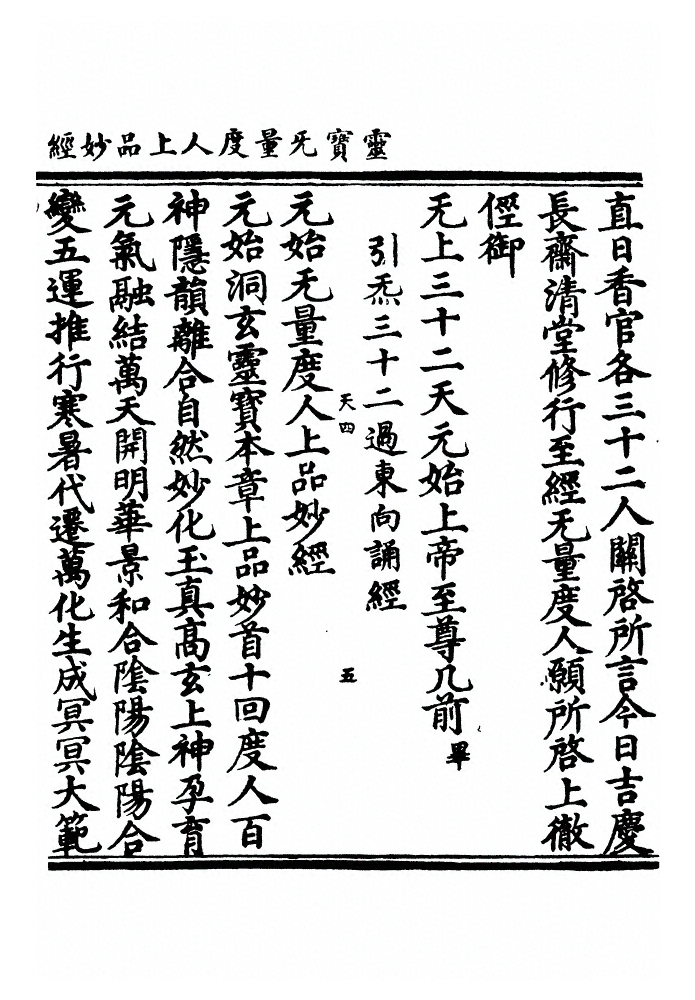 靈寶旡量度人上品妙經
直日香官各三十二人關啓所言今日吉慶
長齋清堂修行至經旡量度人願所啓上徹
俓御
旡上三十二天元始上帝至尊几前畢
引炁三十二過東向誦經
天四
五
元始旡量度人上品妙經
元始洞玄靈寶本章上品妙首十回度人百
神隱韻離合自然妙化玉真高玄上神孕育
元氣融結萬天開明華景和合陰陽陰陽合
變五運推行寒暑代遷萬化生成冥冥大範